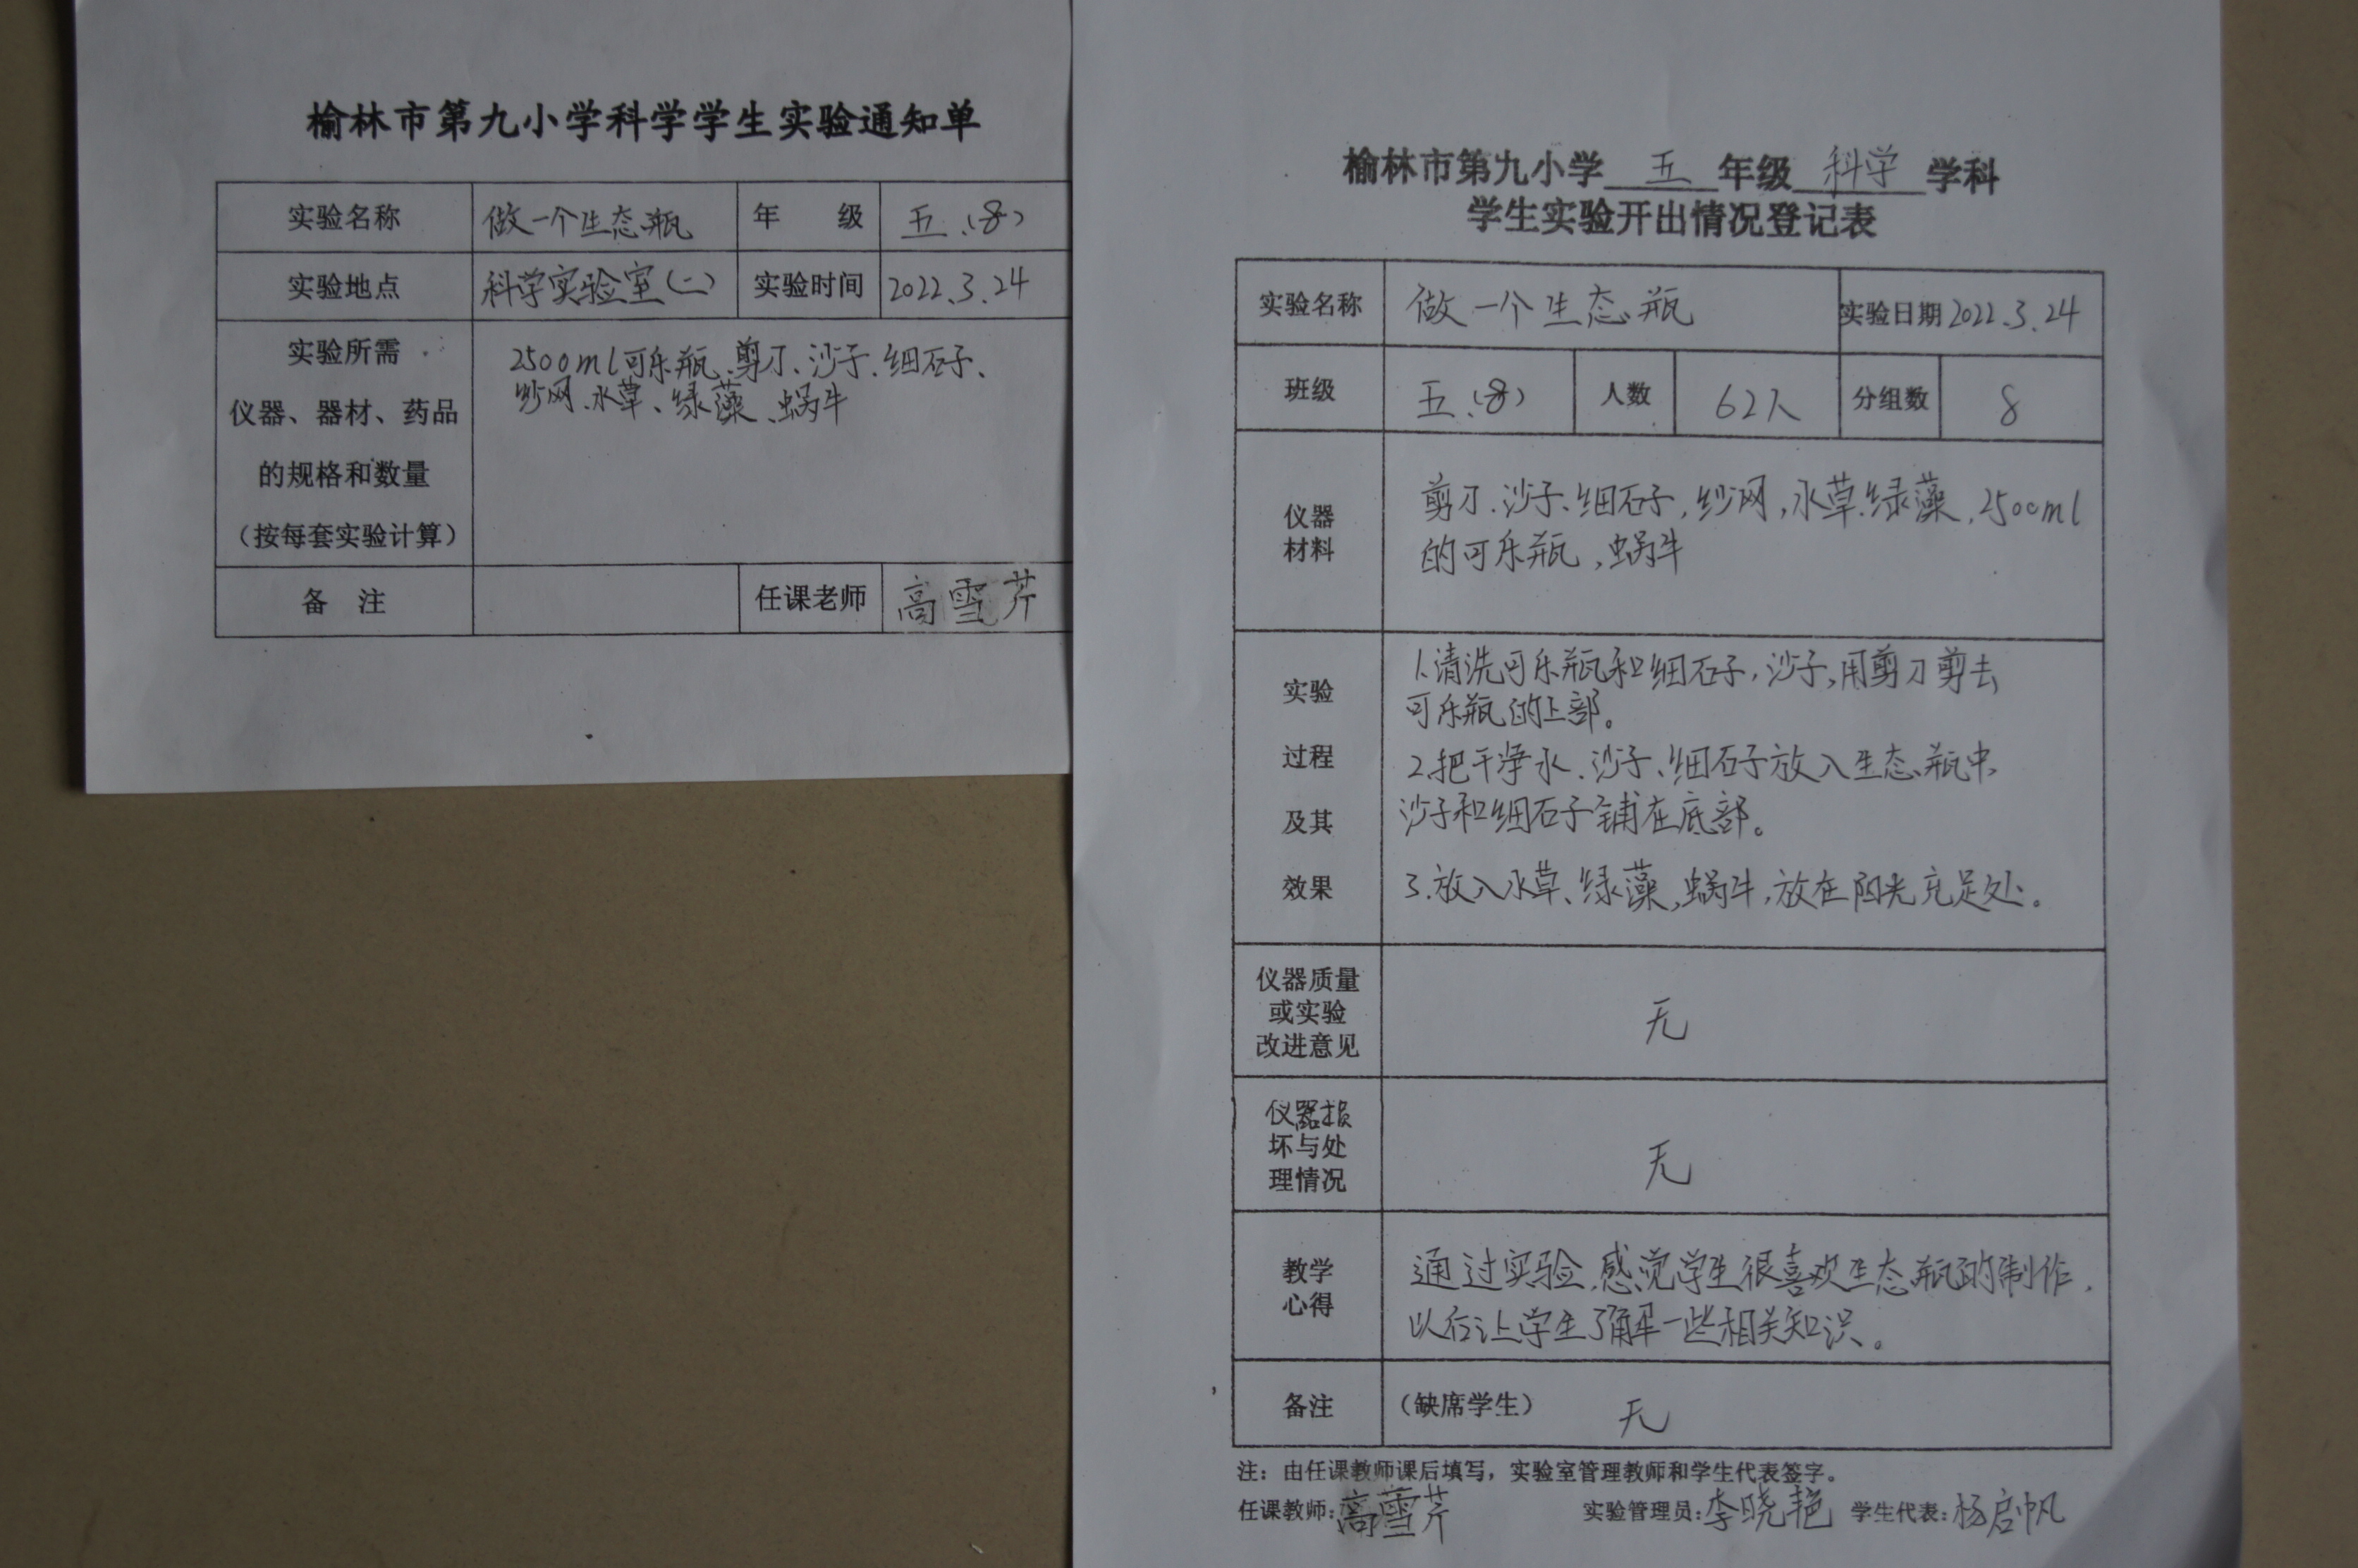 榆林市第九小学科学学生实验通知单
实验名称 做一个生态瓶 年 级 五、(8)
实验地点 科学实验室(二) 实验时间 2022.3.24
实验所需
仪器、器材、药品
的规格和数量
(按每套实验计算)
2500ml可乐瓶、剪刀、沙子、细石子、
纱网、水草、绿藻、蜗牛
备 注 任课老师 高雪芹
榆林市第九小学 五 年级 科学 学科
学生实验开出情况登记表
实验名称 做一个生态瓶 实验日期 2022.3.24
班级 五、(8) 人数 62人 分组数 8
仪器
材料
剪刀、沙子、细石子,纱网,水草、绿藻,2500ml
的可乐瓶,蜗牛
实验
过程
及其
效果
1.清洗可乐瓶和细石子,沙子,用剪刀剪去
可乐瓶的上部。
2.把干净水、沙子、细石子放入生态瓶中,
沙子和细石子铺在底部。
3.放入水草、绿藻,蜗牛,放在阳光充足处。
仪器质量
或实验
改进意见
无
仪器损
坏与处
理情况
无
教学
心得
通过实验,感觉学生很喜欢生态瓶的制作,
以后让学生了解一些相关知识。
备注 (缺席学生) 无
注:由任课教师课后填写,实验室管理教师和学生代表签字。
任课教师:高雪芹 实验管理员:李晓艳 学生代表:杨启帆